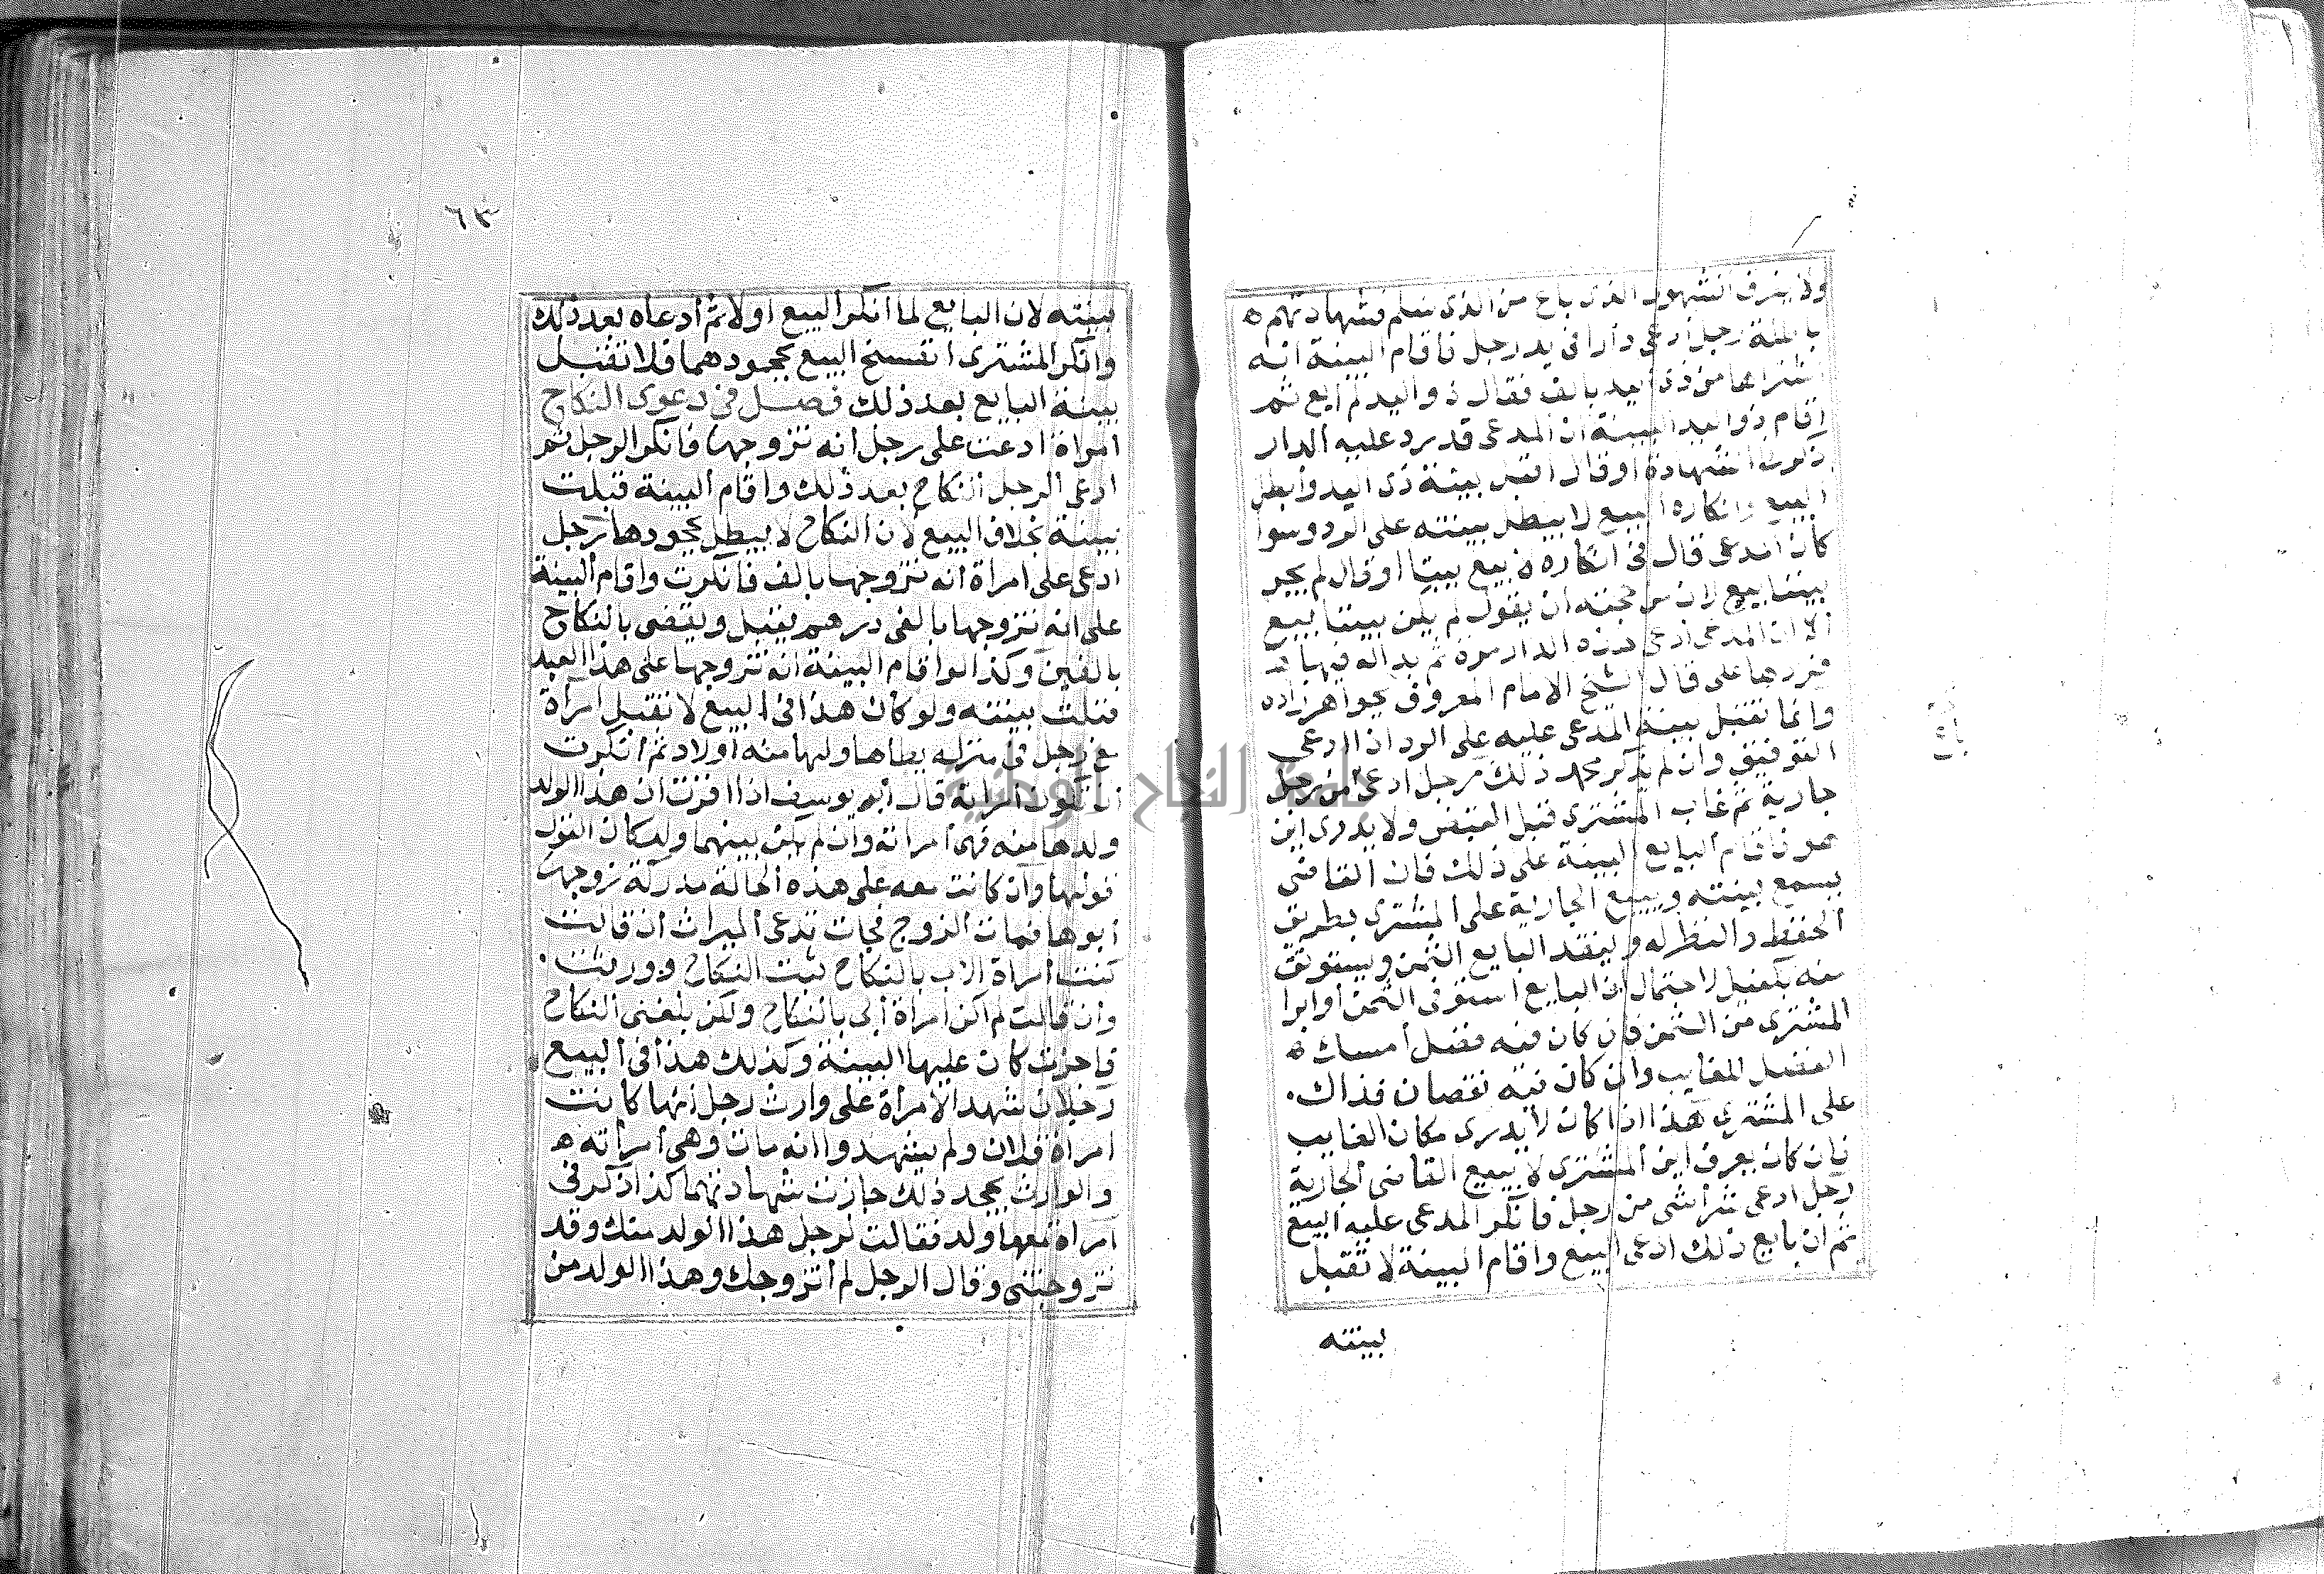 ولا يعرف الشهود الذى باع من الذى سلم فشهادتهم ه
باطلة رجل ادعى دارا فى يد رجل فاقام البينة انه
اشتراها من ذى اليد بالف فقال ذو اليد لم ابع ثم
اقام ذو اليد البينة ان المدعى قد رد عليه الدار
الشهادة اوقال اقبل بينة ذى اليد وابطل
البيع وانكاره البيع لا يبطل بينته على الرد وسوا
كان المدعى قال فى انكاره بيع اوقال لم يجر
بيننا بيع لان من حجته ان يقول لم يكن بيننا بيع
الا ان المدعى ادعى هذه الدار مرة ثم بدا له فيها
فردها على قال الشيخ الامام المعروف بخواهرزاده
وانما تقبل بينة المدعى عليه على الرد ان ادعى
التوفيق وان لم يذكر محمد ذلك رجل ادعى من رجل
جارية ثم غاب المشترى قبل القبض ولا يدرى اين
هو فاقام البايع البينة على ذلك فان القاضى
يسمع بينته ويبيع الجارية على المشترى بطريق
الحفظ والنظر له وينقد البايع الثمن ويستوثق
منه بكفيل لاحتمال ان البايع استوفى الثمن او ابرا
المشترى من الثمن فان كان فيه فضل امسك ه
الفضل للغايب وان كان فيه نقصان فذاك
على المشترى هذا اذا كان لا يدرى مكان الغايب
فان كان يعرف اين المشترى لا يبيع القاضى الجارية
رجل ادعى شرا شى من رجل فانكر المدعى عليه البيع
ثم ان بايع ذلك ادعى البيع واقام البينة لا تقبل
بينته
٦٣
بينته لان البايع لما انكر البيع اولا ثم ادعاه بعد ذلك
وانكر المشترى انفسخ البيع بجحودهما فلا تقبل
بينة البايع بعد ذلك فصل فى دعوى النكاح
امراة ادعت على رجل انه تزوجها فانكر الرجل ثم
ادعى الرجل النكاح بعد ذلك واقام البينة قبلت
بينة بخلاف البيع لان النكاح لا يبطل بجحودها رجل
ادعى على امراة انه تزوجها بالف فانكرت واقام البينة
على انه تزوجها بالفى درهم يقبل ويقضى بالنكاح
بالفين وكذا لو اقام البينة انه تزوجها على هذا العبد
قبلت بينته ولو كان هذا فى البيع لا تقبل امرأة
مع رجل فى منزله يطاها ولها منه اولاد ثم انكرت
ان تكون امراته قال ابو يوسف اذا اقرت ان هذا الولد
ولدها منه فهى امراته وان لم يكن بينهما ولد كان القول
قولها وان كانت معه على هذه الحالة مدركة زوجها
ابوها فمات الزوج فجات تدعى الميراث ان قالت
كنت امراة الاب بالنكاح ثبت النكاح وورثت
وان قالت لم اكن امراة ابى بالنكاح ولكن بلغنى النكاح
فاجزت كان عليها البينة وكذلك هذا فى البيع
رجلان شهد الامرأة على وارث رجل انها كانت
امراة فلان ولم يشهدوا انه مات وهى امرأته ه
والوارث يجحد ذلك جازت شهادتهما كذا ذكر فى
امراة معها ولد فقالت لرجل هذا الولد منك وقد
تزوجتنى وقال الرجل لم اتزوجك وهذا الولد من